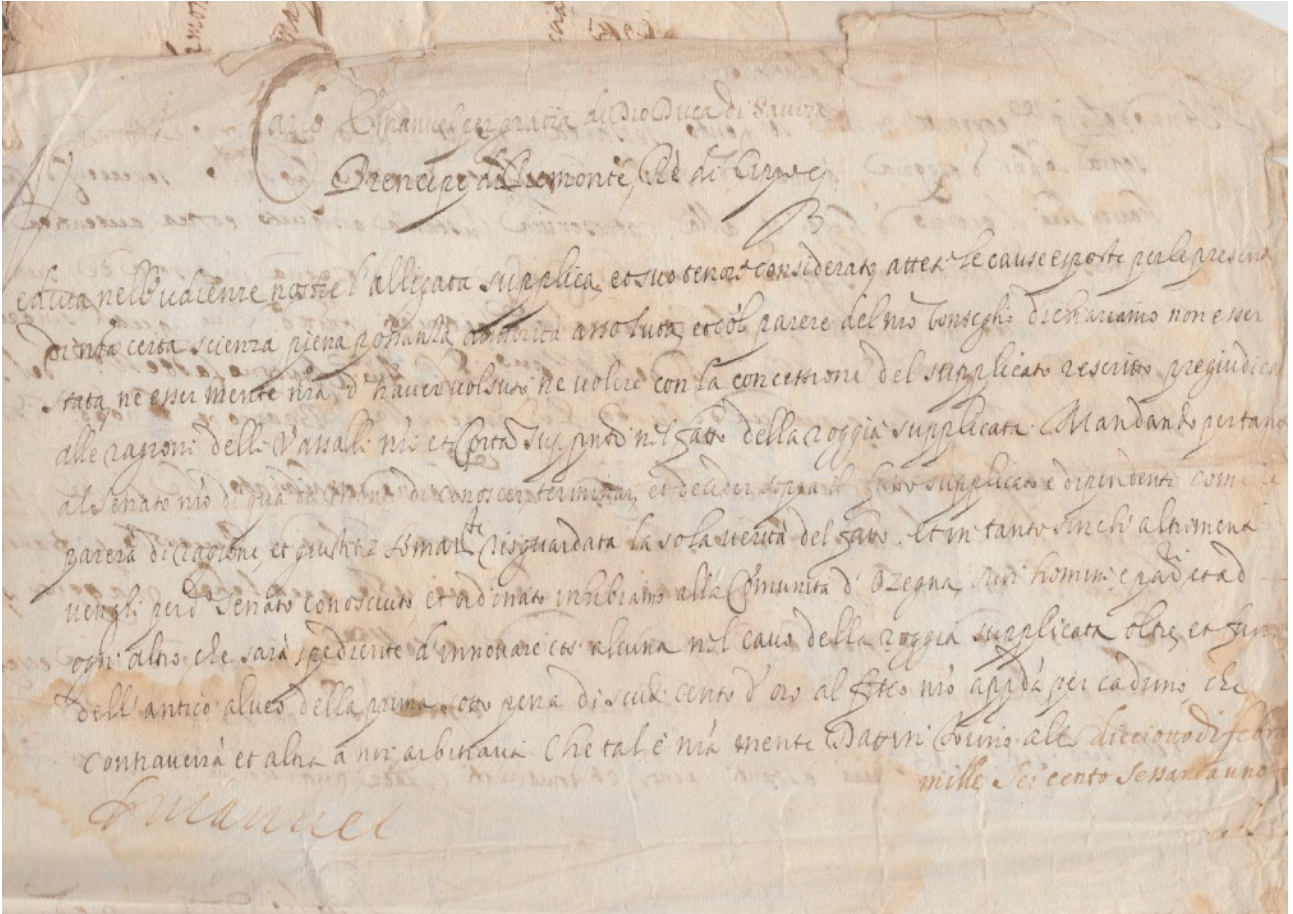 Carlo Emanuel per gratia di Dio Duca di Savoia
Prencipe di Piemonte, Rè di Cipro &c
Veduta nell'udienze nostre l'alligata supplica, et suo tenore considerato, attese le cause esposte per le presenti
di nra certa scienza piena possanza, autorità assoluta, et col parere del nro Conseglio dichiariamo non esser
stata, ne esser mente nra d'haver volsuto, ne volere con la concessione del supplicato rescritto pregiudicar
alle ragioni delli Vassalli nri et Contà nel fatto della roggia supplicata. Mandando pertanto
al Senato nro di quà da monti di conoscer, terminar, et decider sopra il fatto supplicato e dipendenti come le
parerà di ragione, et giustitia somar.te risguardata la sola verità del fatto. Et in tanto sinche altrimenti
venghi per d° Senato conosciuto, et ordinato inhibiamo alla Comunità d'Ozegna, suoi homini, e par.ri et ad
ogni altro che sarà spediente d'innovare cos'alcuna nel cavo della roggia supplicata oltre, et fuori
dell'antico alveo della prima sotto pena di scudi cento d'oro al fisco nro app.da per caduno, che
contraverrà et altra a noi arbitraria Che tal è nra mente Dat in Torino alli dicciotto di febro
mille sei cento sessanta uno
Emanuel